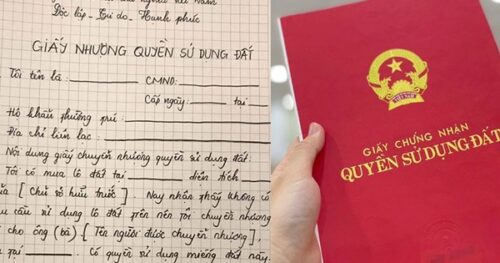 Độc lập - Tự do - Hạnh phúc
GIẤY NHƯỢNG QUYỀN SỬ DỤNG ĐẤT
Tôi tên là: CMND:
Cấp ngày: tại
Hộ khẩu thường trú:
Địa chỉ liên lạc:
Nội dung giấy chuyển nhượng quyền sử dụng đất.
Tôi có mua lô đất tại diện tích
của [ Chủ sở hữu trước ]. Nay nhận thấy không có
cầu sử dụng lô đất trên nên tôi chuyển nhượng
cho ông (bà) [ Tên người được chuyển nhượng ].
tại . Có quyền sử dụng miếng đất này.
VIỆT NAM
GIẤY CHỨNG NHẬN
QUYỀN SỬ DỤNG ĐẤT